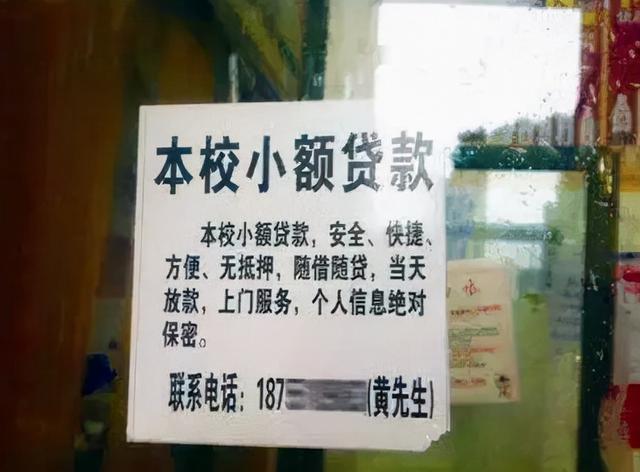 本校小额贷款
本校小额贷款，安全、快捷、
方便、无抵押，随借随贷，当天
放款，上门服务，个人信息绝对
保密。
联系电话：187 (黄先生)